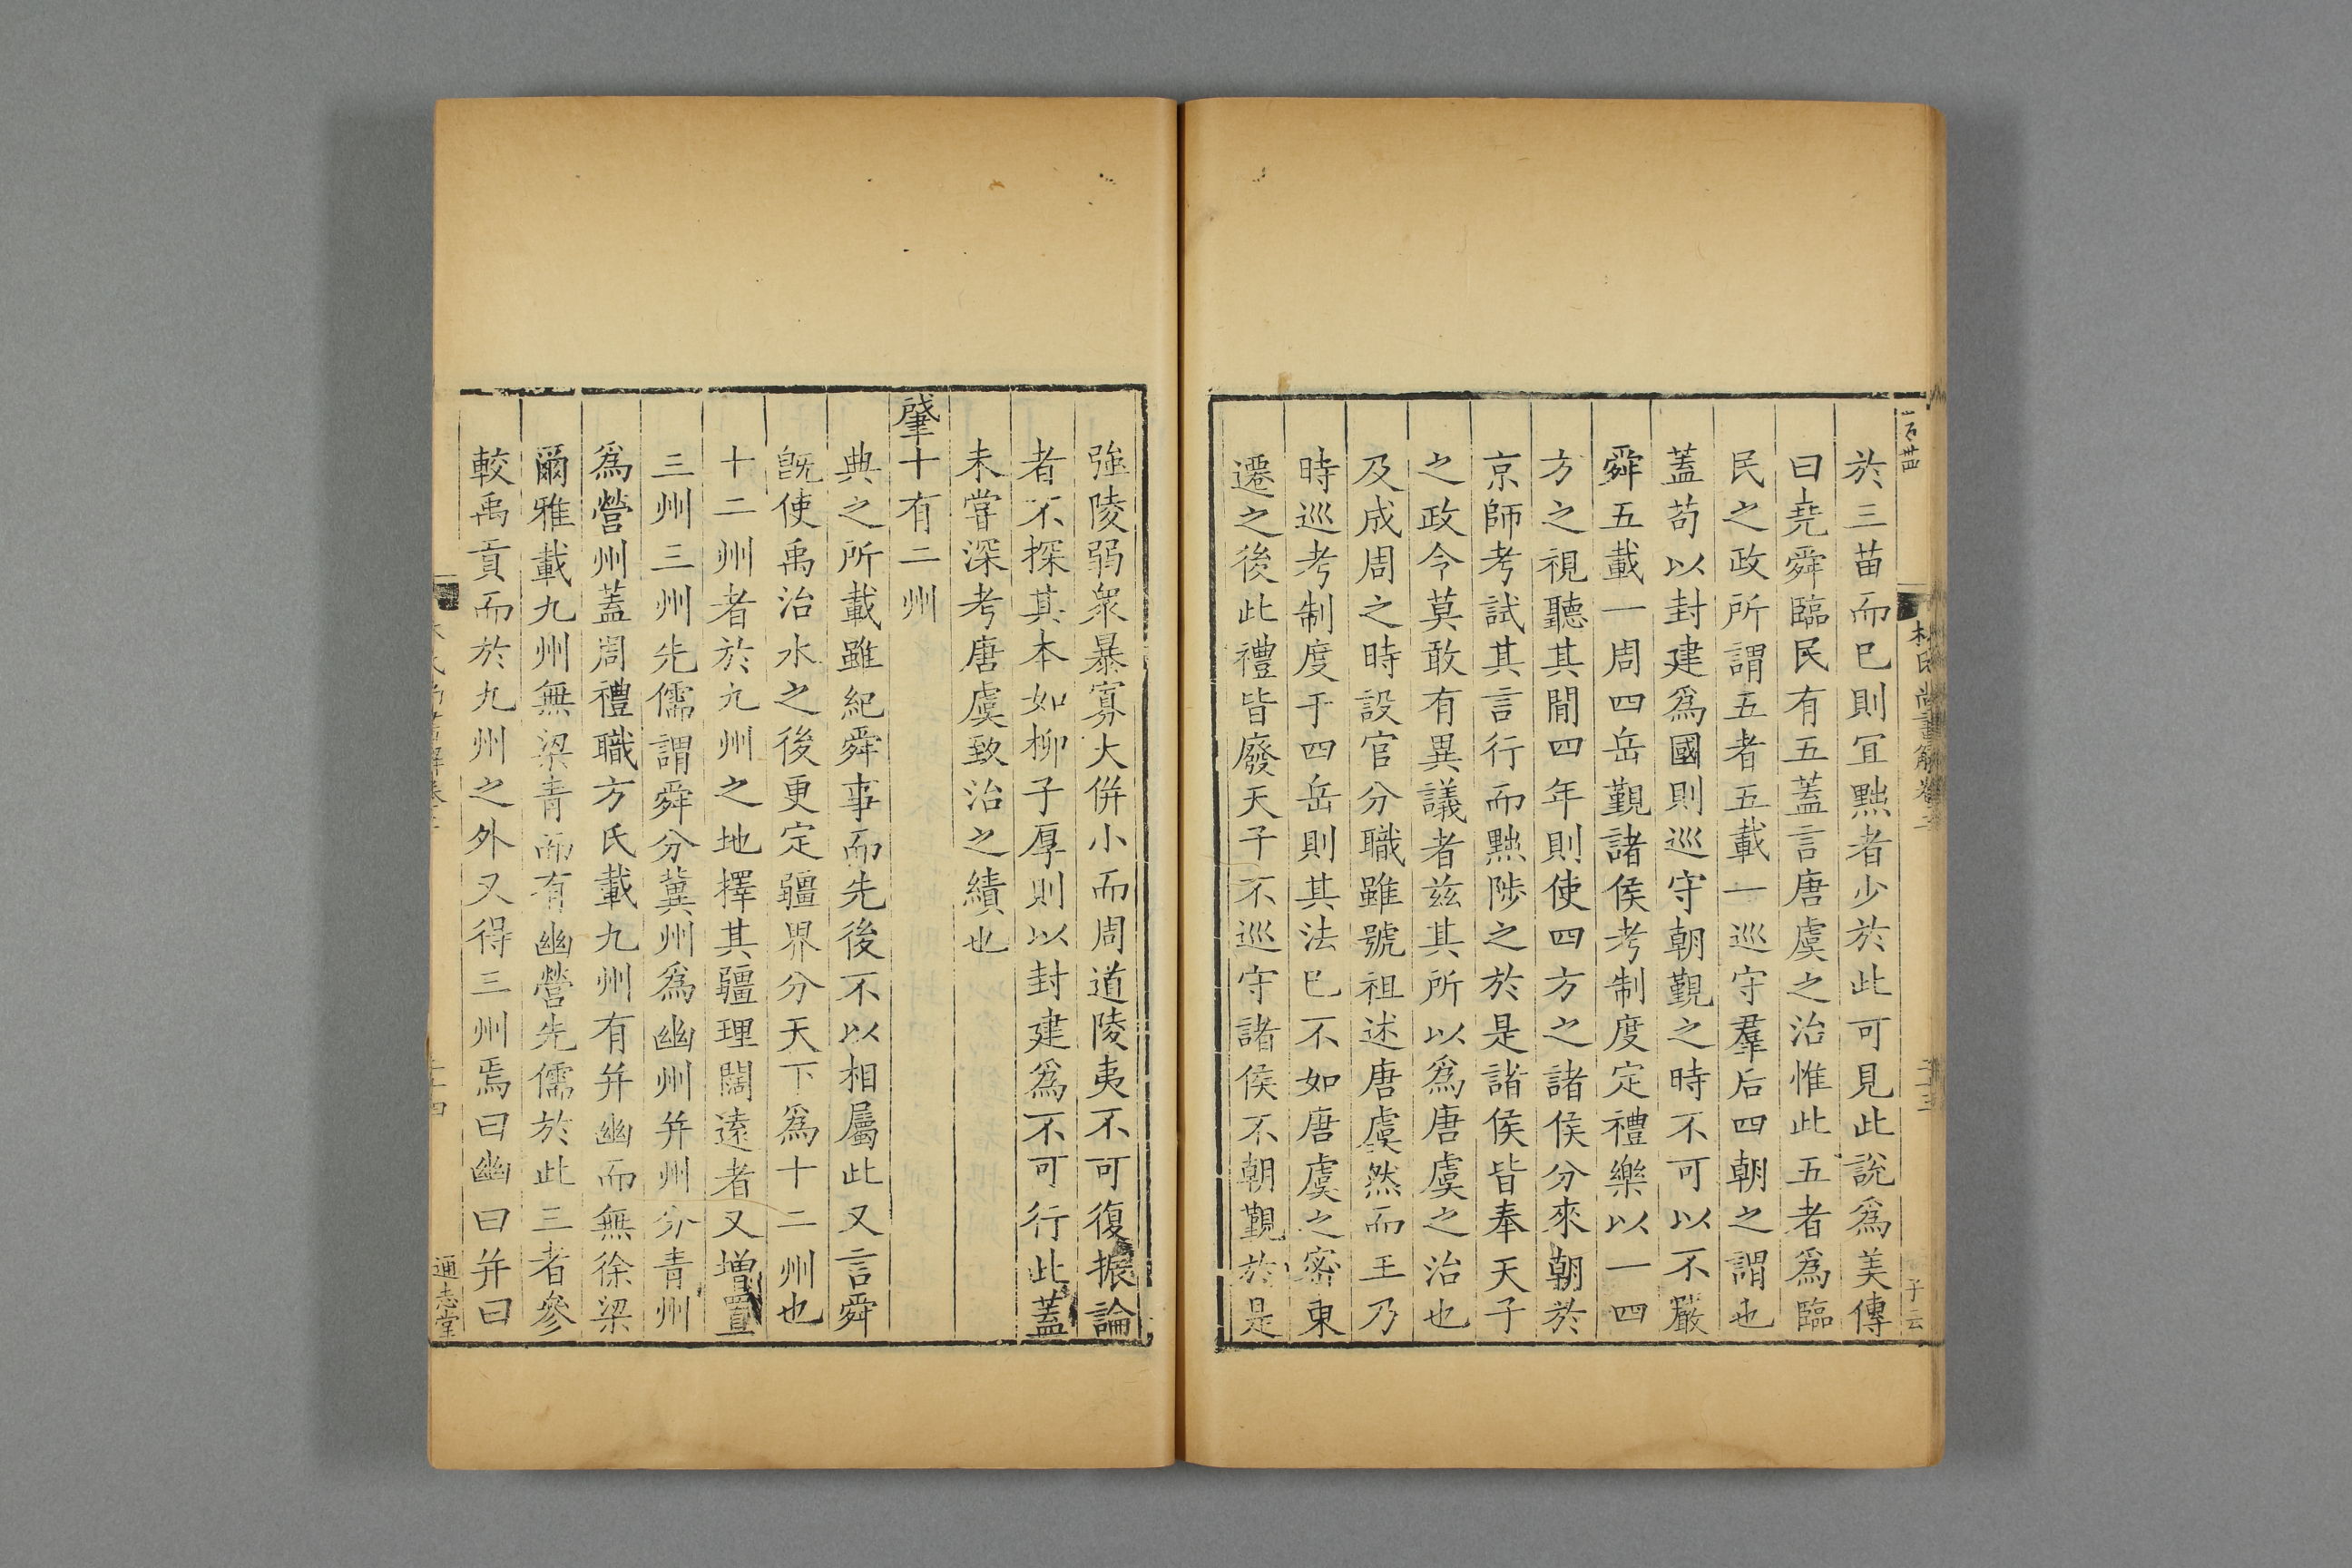 於三苗而已則宜黜者少於此可見此說爲美傳
曰堯舜臨民有五蓋言唐虞之治惟此五者爲臨
民之政所謂五者五載一巡守羣后四朝之謂也
蓋苟以封建爲國則巡守朝覲之時不可以不嚴
舜五載一周四岳覲諸侯考制度定禮樂以一四
方之視聽其閒四年則使四方之諸侯分來朝於
京師考試其言行而黜陟之於是諸侯皆奉天子
之政令莫敢有異議者兹其所以爲唐虞之治也
及成周之時設官分職雖號祖述唐虞然而王乃
時巡考制度于四岳則其法已不如唐虞之密東
遷之後此禮皆廢天子不巡守諸侯不朝覲於是
強陵弱衆暴寡大併小而周道陵夷不可復振論
者不探其本如柳子厚則以封建爲不可行此蓋
未嘗深考唐虞致治之績也
肇十有二州
典之所載雖紀舜事而先後不以相屬此又言舜
旣使禹治水之後更定疆界分天下爲十二州也
十二州者於九州之地擇其疆理闊遠者又增置
三州三州先儒謂舜分冀州爲幽州并州分青州
爲營州蓋周禮職方氏載九州有并幽而無徐梁
爾雅載九州無梁青而有幽營先儒於此三者參
較禹貢而於九州之外又得三州焉曰幽曰并曰
通志堂